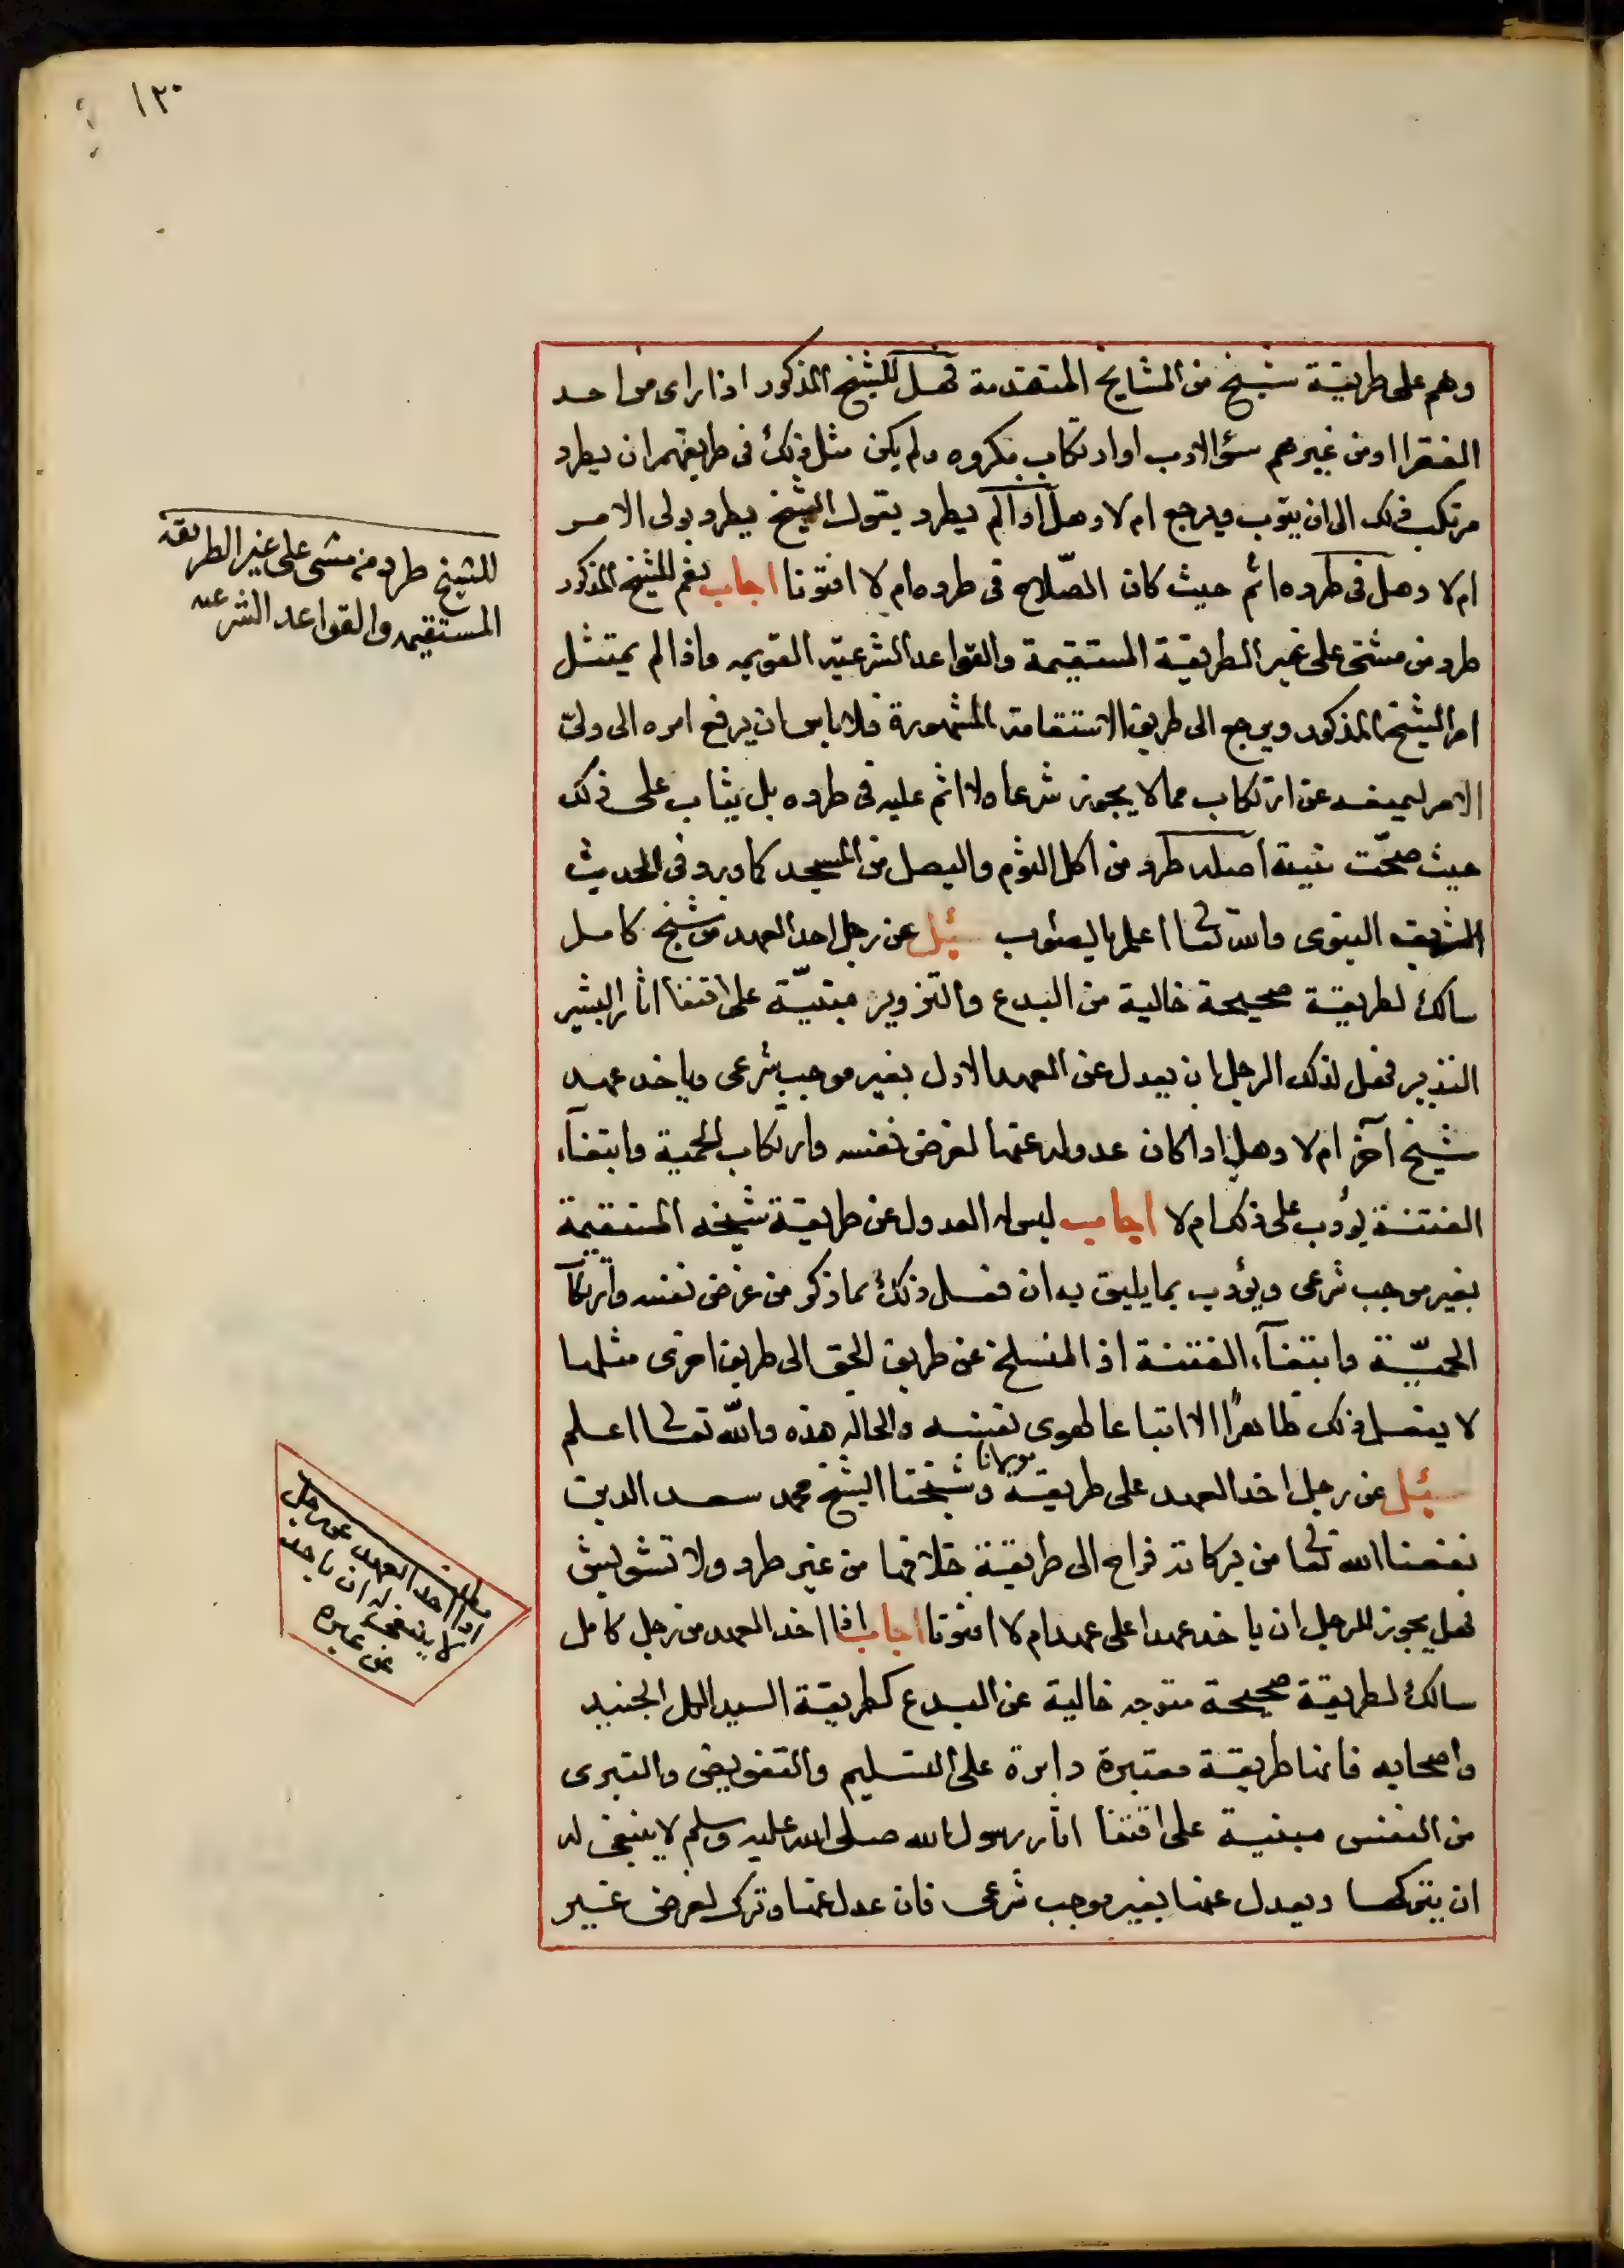 ١٢٠
وهم على طريقة شيخ من المشايخ المتقدمة فهل للشيخ المذكور اذا راى من احد
الفقرا او من غيرهم سؤ الادب او ارتكاب مكروه ولم يكن مثل ذلك فى طريقتهم ان يطرد
مرتكب ذلك الى ان يتوب ويرجع ام لا وهل اذا لم يطرد يقول الشيخ يطرد بولى الامر
ام لا وهل فى طرده اثم حيث كان الصّلاح فى طرده ام لا افتونا اجاب نعم للشيخ المذكور
طرد من مشى على غير الطريقة المستقيمة والقواعد الشرعيّه القويمه واذا لم يمتثل
امر الشيخ المذكور ويرجع الى طريق الاستقامة المشهورة فلا باس ان يرفع امره الى ولىّ
الامر ليمنعه عن ارتكاب مما لا يجوز شرعا ولا اثم عليه فى طرده بل يثاب على ذلك
حيث صحّت نيته اصله طرد من اكل الثوم والبصل من المسجد كما ورد فى الحديث
الشريف النبوى والله تعالى اعلم بالصواب سئل عن رجل اخذ العهد من شيخ كامل
سالك لطريقة صحيحة خالية من البدع والتزوير مبنيّة على اقتفا اثار البشير
النذير فهل لذلك الرجل ان يعدل عن العهد الاول بغير موجب شرعى وياخذ عهد
شيخ آخر ام لا وهل اذا كان عدوله عنها لغرض نفسه وارتكاب الحمية وابتغآء
الفتنة يؤدب على ذلك ام لا اجاب ليس له العدول عن طريقة شيخه المستقيمة
بغير موجب شرعى ويؤدب بما يليق به ان فعل ذلك بما ذكر من غرض نفسه وارتكاب
الحميّة وابتغآء الفتنة اذ المنسلخ عن طريق الحق الى طريق اخرى مثلها
لا يفعل ذلك ظاهرًا الا اتباعا لهوى نفسه والحالة هذه والله تعالى اعلم
سئل عن رجل اخذ العهد على طريقة مولانا وشيخنا الشيخ محمد سعد الدين
نفعنا الله تعالى من بركاته فراح الى طريقة خلافها من غير طرد ولا تشويش
فهل يجوز للرجل ان ياخذ عهدا على عهد ام لا افتونا اجاب اذا اخذ العهد من رجل كامل
سالك لطريقة صحيحة متوجه خالية عن البدع كطريقة السيد الجليل الجنيد
واصحابه فانها طريقة معتبرة دايرة على التسليم والتفويض والتبرى
من النفس مبنية على اقتفا اثار رسول الله صلى الله عليه وسلم لا ينبغى له
ان يتركها ويعدل عنها بغير موجب شرعى فان عدل عنها وترك لغرض غير
للشيخ طرد من مشى على غير الطريقة
المستقيمه والقواعد الشرعيه
مطلب
اذا اخذ العهد عن رجل
لا ينبغى له ان ياخذ
عن غيره